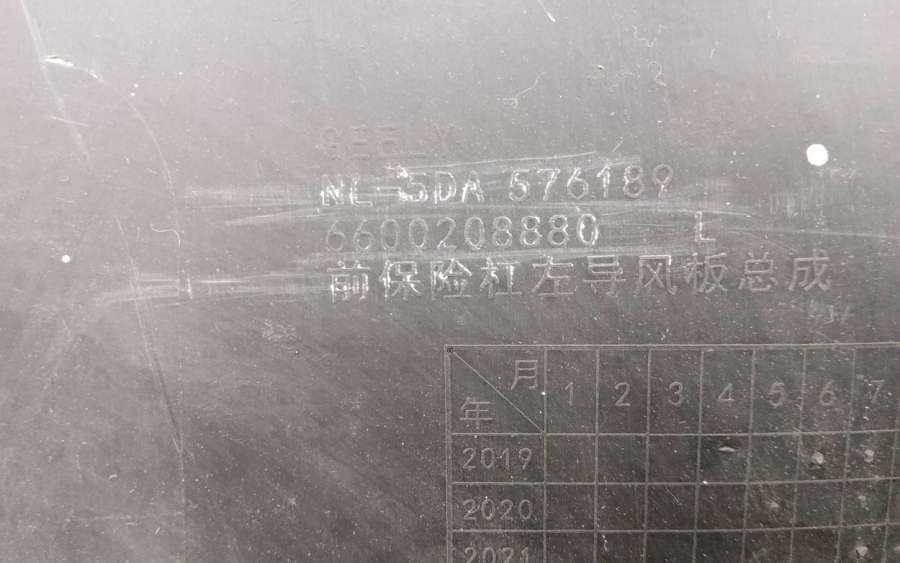 GEELY
NL-5DA 576189
6600208880 L
前保险杠左导风板总成
月 1 2 3 4 5 6 7
年
2019
2020
2021